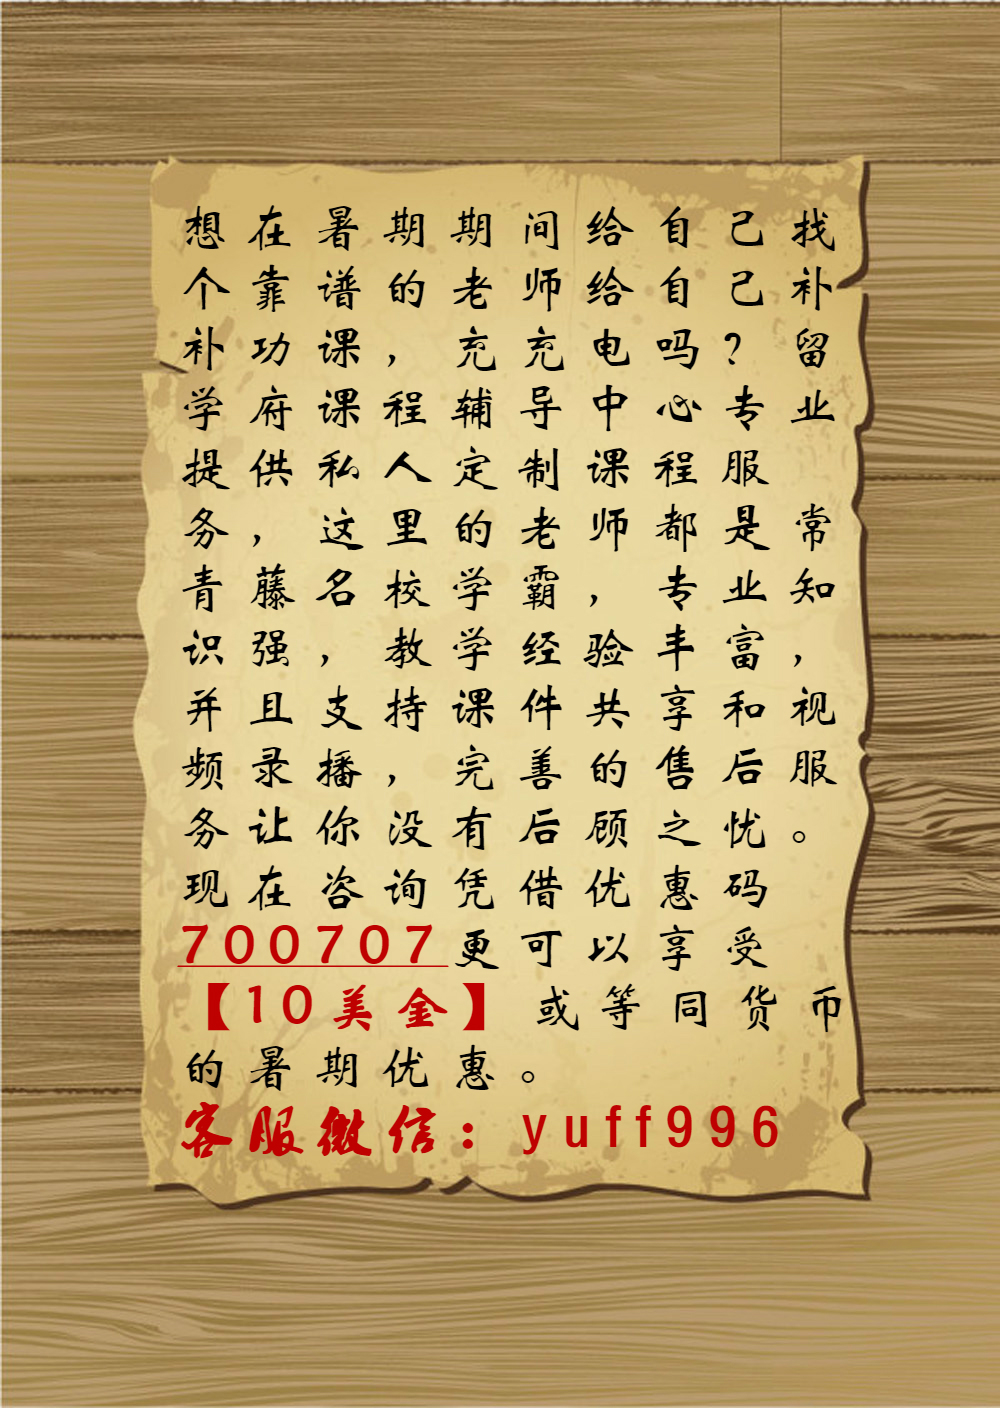 想在暑期期间给自己找
个靠谱的老师给自己补
补功课，充充电吗？留
学府课程辅导中心专业
提供私人定制课程服
务，这里的老师都是常
青藤名校学霸，专业知
识强，教学经验丰富，
并且支持课件共享和视
频录播，完善的售后服
务让你没有后顾之忧。
现在咨询凭借优惠码
700707更可以享受
【10美金】或等同货币
的暑期优惠。
客服微信：yuff996